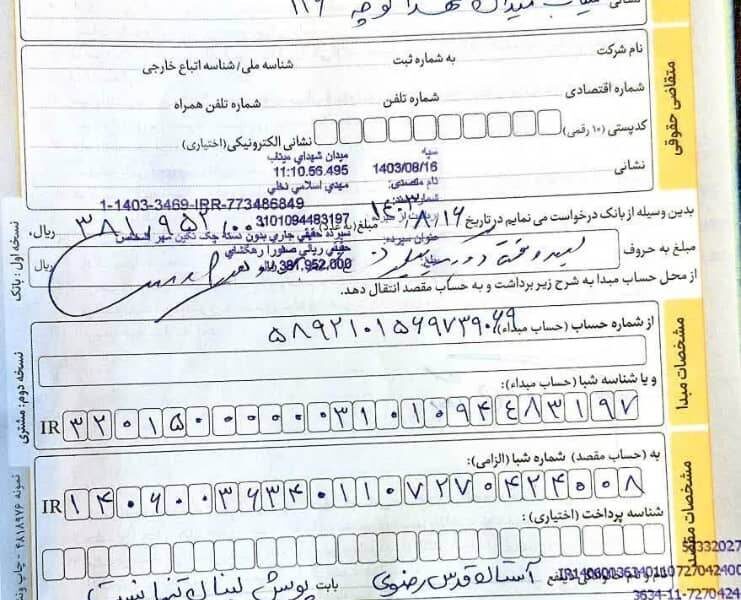 نشانی میدان شهدا کوچه ۱۱۶
متقاضی حقوقی
نام شرکت به شماره ثبت شناسه ملی/ شناسه اتباع خارجی
شماره اقتصادی شماره تلفن شماره تلفن همراه
کدپستی (۱۰ رقمی) نشانی الکترونیکی(اختیاری)
نشانی
سپه
1403/08/16
نام متصدی:
میدان شهدای میناب
11:10:56.495
مهدی اسلامی نخلی
1-1403-3469-IRR-773486849
3101094483197
بدین وسیله از بانک درخواست می نمایم در تاریخ ۱۴۰۳/۸/۱۶ مبلغ(به عدد) ۳۸۱,۹۵۲,۰۰۰ ریال،
سپرده حقیقی جاری بدون دسته چک نگین سپهر اشخاص
عنوان سپرده:
حقیقی ریالی صفورا رهگشای
381,952,000
مبلغ به حروف ریال
از محل حساب مبدا به شرح زیر برداشت و به حساب مقصد انتقال دهد.
مشخصات مبدا
از شماره حساب (حساب مبداء) ۵۸۹۲۱۰۱۵۶۹۷۳۹۰۶۹
و یا شناسه شبا (حساب مبداء):
IR ۳۲۰۱۵۰۰۰۰۰۰۳۱۰۱۰۹۴۴۸۳۱۹۷
مشخصات مقصد
به (حساب مقصد) شماره شبا (الزامی):
IR ۱۴۰۶۰۰۳۶۳۴۰۱۱۰۷۲۷۰۴۲۴۰۰۸
شناسه پرداخت (اختیاری) :
آستان قدس رضوی بابت
3634-11-7270424
نسخه اول : بانک
نسخه دوم: مشتری
نمونه ۴۸۱۸۹۷۶ - چاپ